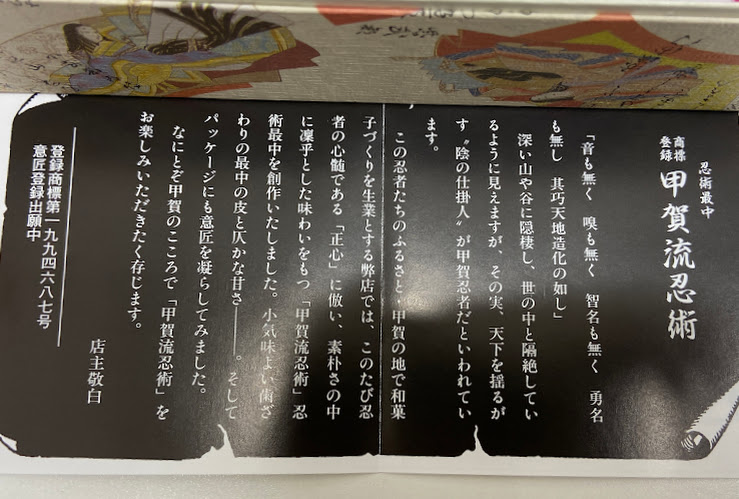 忍術最中
商標
登録
甲賀流忍術
「音も無く 嗅も無く 智名も無く 勇名
も無し 其巧天地造化の如し」
深い山や谷に隠棲し、世の中と隔絶してい
るように見えますが、その実、天下を揺るが
す〝陰の仕掛人〟が甲賀忍者だといわれてい
ます。
この忍者たちのふるさと・甲賀の地で和菓
子づくりを生業とする弊店では、このたび忍
者の心髄である「正心」に倣い、素朴さの中
に凜乎とした味わいをもつ「甲賀流忍術」忍
術最中を創作いたしました。小気味よい歯ざ
わりの最中の皮と仄かな甘さ――。そして
パッケージにも意匠を凝らしてみました。
なにとぞ甲賀のこころで「甲賀流忍術」を
お楽しみいただきたく存じます。
店主敬白
登録商標第一九九四六八七号
意匠登録出願中